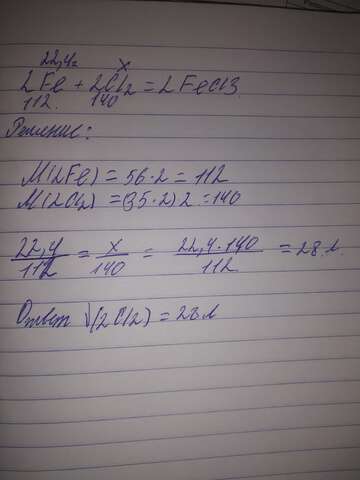 22,4г x
2Fe + 2Cl2 = 2FeCl3
112. 140
Решение:
M(2Fe) = 56·2 = 112
M(2Cl2) = (35·2)2 = 140
22,4/112 = x/140 = 22,4·140/112 = 28 л.
Ответ V(2Cl2) = 28 л